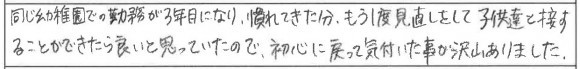 同じ幼稚園での勤務が3年目になり、慣れてきた分、もう1度見直しをして子供達と接す
ることができたら良いと思っていたので、初心に戻って気付いた事が沢山ありました。